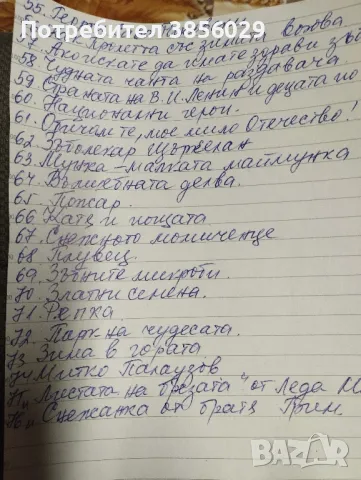 Потребител #8656029
55.
57. Как Пролетта със зимата воюва
Ако искате да имате здрави зъби
58. Чудната чанта на раздавача.
59. Страната на В. И. Ленин и децата ѝ
60. Национални герои.
61. Обичам те, мое мило Отечество!
62. Зъболекар Щъркелан
63. Мунка - малката маймунка
64. Вълшебната делва.
65. Пожар.
66. Катя и нощта
67. Снежното момиченце
68. Плувец.
69. Зъбните микроби.
70. Златни семена.
71. Репка
72. Парк на чудесата.
73 Зима в гората
74 Митко Палаузов
75 „Листата на брезата" от Леда М
76 „Снежанка от братя Грим.
bazar.bg